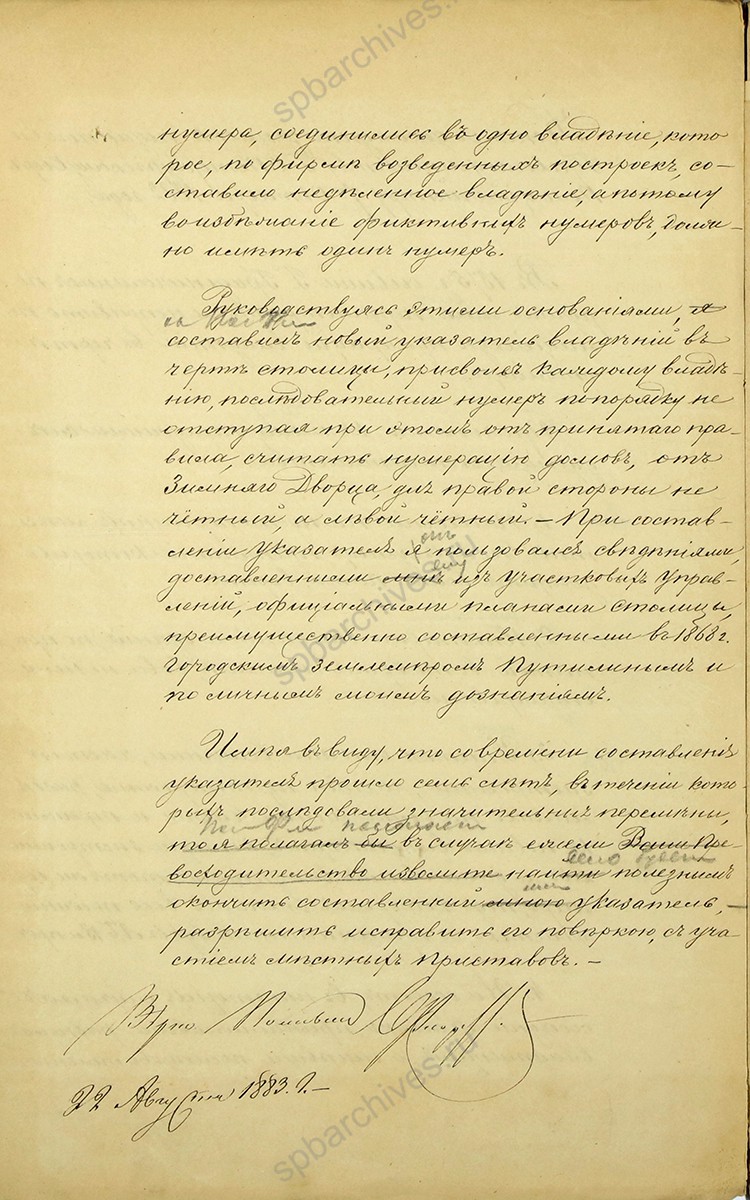 нумера, соединились въ одно владѣніе, кото-
рое, по фирмѣ возведенныхъ построекъ, со-
ставило недѣленное владѣніе, а потому
во избѣжаніе фиктивныхъ нумеровъ, долж-
но имѣть одинъ нумеръ.
Руководствуясь этими основаніями, я
составилъ новый указатель владѣній въ
чертѣ столицы, присвоивъ каждому владѣ-
нію, послѣдовательный нумеръ по порядку не
отступая при этомъ отъ принятаго пра-
вила, считать нумерацію домовъ, отъ
Зимняго Дворца, для правой стороны не
чётный, а лѣвой чётный. — При состав-
леніи указателя я пользовался свѣдѣніями,
ему
доставленными мнѣ изъ участковыхъ Управ-
леній, официальными планами столицы,
преимущественно составленными въ 1868 г.
Городскимъ Землемѣромъ Путилинымъ и
по личнымъ моимъ дознаніямъ.
Имѣя въ виду, что со времени составленія
указателя прошло семь лѣтъ, въ теченіи кото-
рыхъ послѣдовали значительныя перемѣны,
то я полагалъ бы въ случаѣ ежели Ваше Пре-
восходительство изволите найти полезнымъ
окончить составленный мною указатель, —
разрѣшить исправить его повѣркою, съ уча-
стіемъ мѣстныхъ Приставовъ. —
22 Августа 1883. г. —
spbarchives.ru
spbarchives.ru
spbarchives.ru